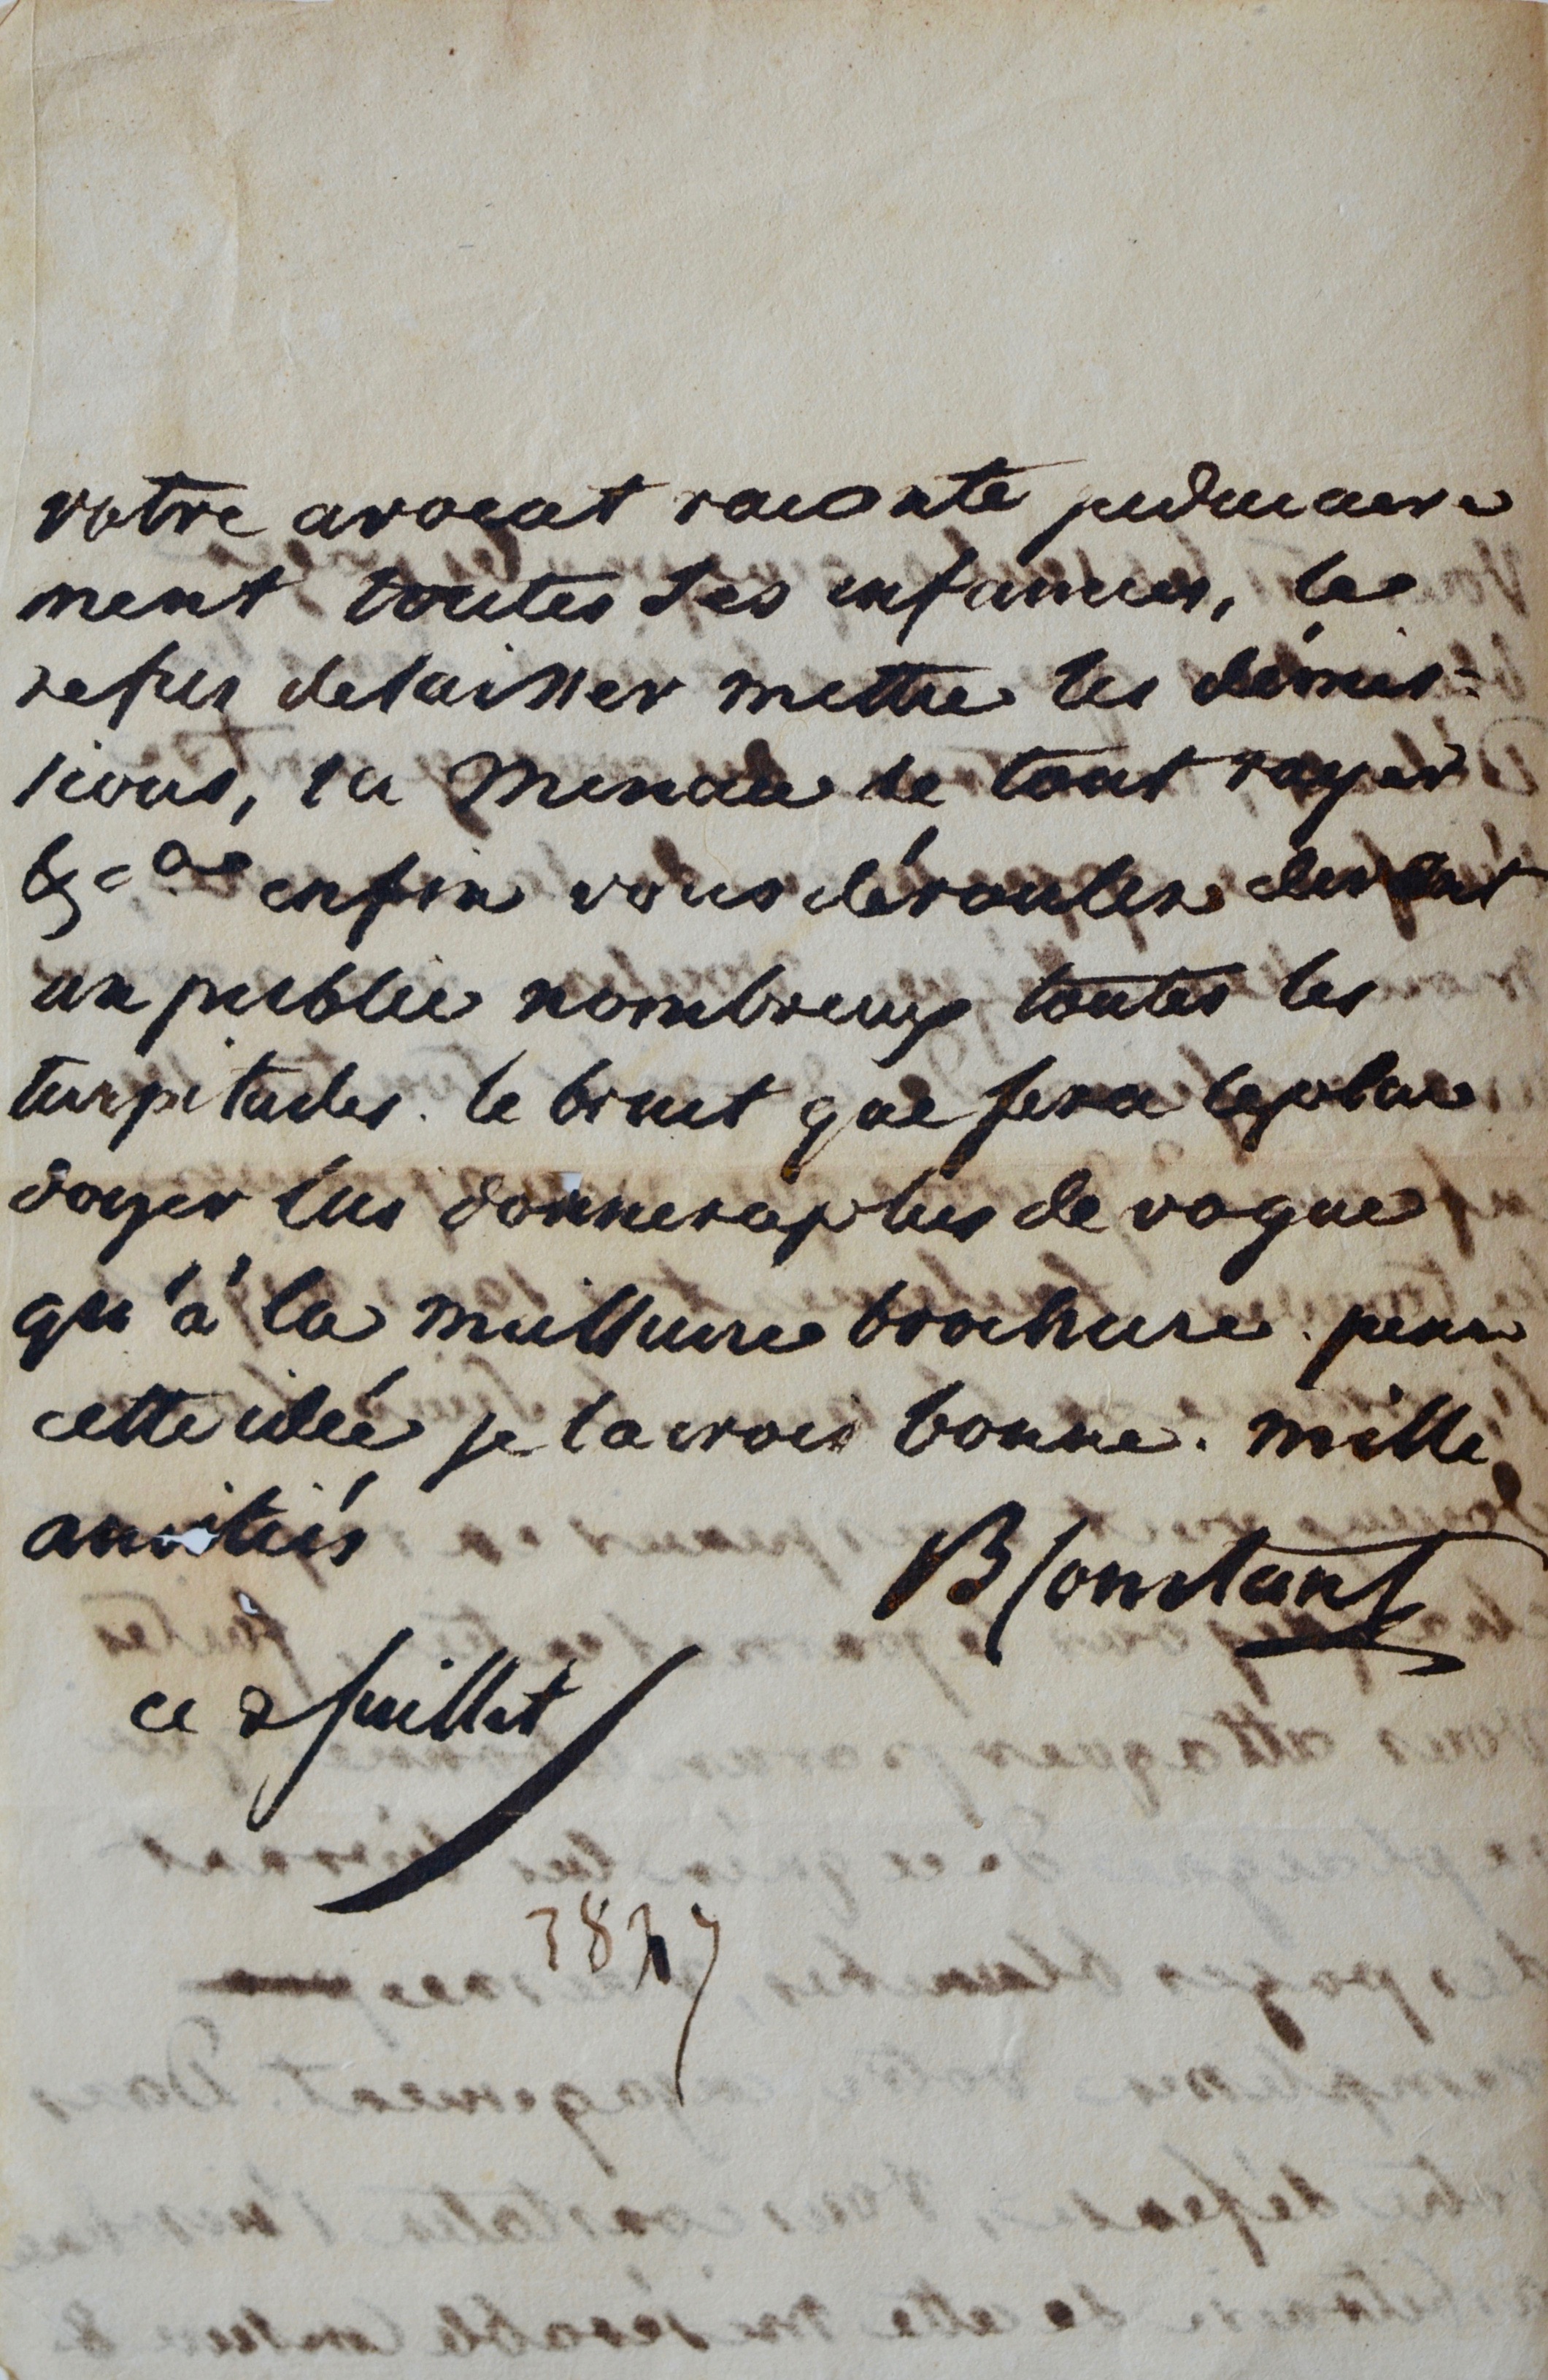 votre avocat raconte judiciaire
ment toutes ses infamies, le
refus de laisser mettre les démis=
sions, la menace de tout rayer
&ca enfin vous déroulez devant
un public nombreux toutes les
turpitudes. le bruit que fera le plai
doyer lui donnera plus de vogue
qu'à la meilleure brochure. pesez
cette idée je la crois bonne. mille
amitiés
B Constant
ce 2 juillet
1827